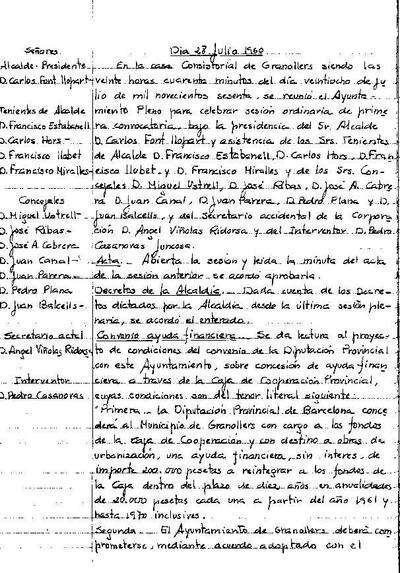 Señores
Alcalde-Presidente
D. Carlos Font Llopart-
Tenientes de Alcalde
D. Francisco Estabanell
D. Carlos Hors-
D. Francisco Llobet
D. Francisco Miralles-
Concejales
D. Miguel Ustrell-
D. José Ribas-
D. José A. Cabrera
D. Juan Canal-
D. Juan Parera-
D. Pedro Plana
D. Juan Balcells-
Secretario actal
D. Angel Viñolas Ridorsa-
Interventor
D. Pedro Casanoras
Dia 28 Julio 1960
En la casa Consistorial de Granollers siendo las
veinte horas cuarenta minutos del día veintiocho de ju
lio de mil novecientos sesenta, se reunió el Ayunta-
miento Pleno para celebrar sesión ordinaria de prime
ra convocatoria, bajo la presidencia del Sr. Alcalde
D. Carlos Font Llopart y asistencia de los Srs. Tenientes
de Alcalde D. Francisco Estabanell, D. Carlos Hors, D. Fran
cisco Llobet, y D. Francisco Miralles y de los Srs. Con-
cejales D. Miguel Ustrell, D. José Ribas, D. José A. Cabre
ra D. Juan Canal, D. Juan Parera, D. Pedro Plana y D.
Juan Balcells, y del Secretario accidental de la Corpora
ción D. Angel Viñolas Ridorsa y del Interventor D. Pedro
Casanoras Juncosa.
Acta.- Abierta la sesión y leida la minuta del acta
de la sesión anterior se acordó aprobarla.
Decretos de la Alcaldía.- Dada cuenta de los Decre-
tos dictados por la Alcaldía desde la última sesión ple-
naria, se acordó el enterado.
Convenio ayuda financiera.- Se da lectura al proyec-
to de condiciones del convenio de la Diputación Provincial
con este Ayuntamiento, sobre concesión de ayuda finan
ciera a traves de la Caja de Cooperación Provincial,
cuyas condiciones son del tenor literal siguiente:
"Primera.- la Diputación Provincial de Barcelona conce
derá al Municipio de Granollers con cargo a los fondos
de la Caja de Cooperación y con destino a obras de
urbanización, una ayuda financiera, sin interes, de
importe 200.000 pesetas a reintegrar a los fondos de
la Caja dentro del plazo de diez años en anualidades
de 20.000 pesetas cada una a partir del año 1961 y
hasta 1970 inclusives.
Segunda.- El Ayuntamiento de Granollers deberá com
prometerse, mediante acuerdo adoptado con el